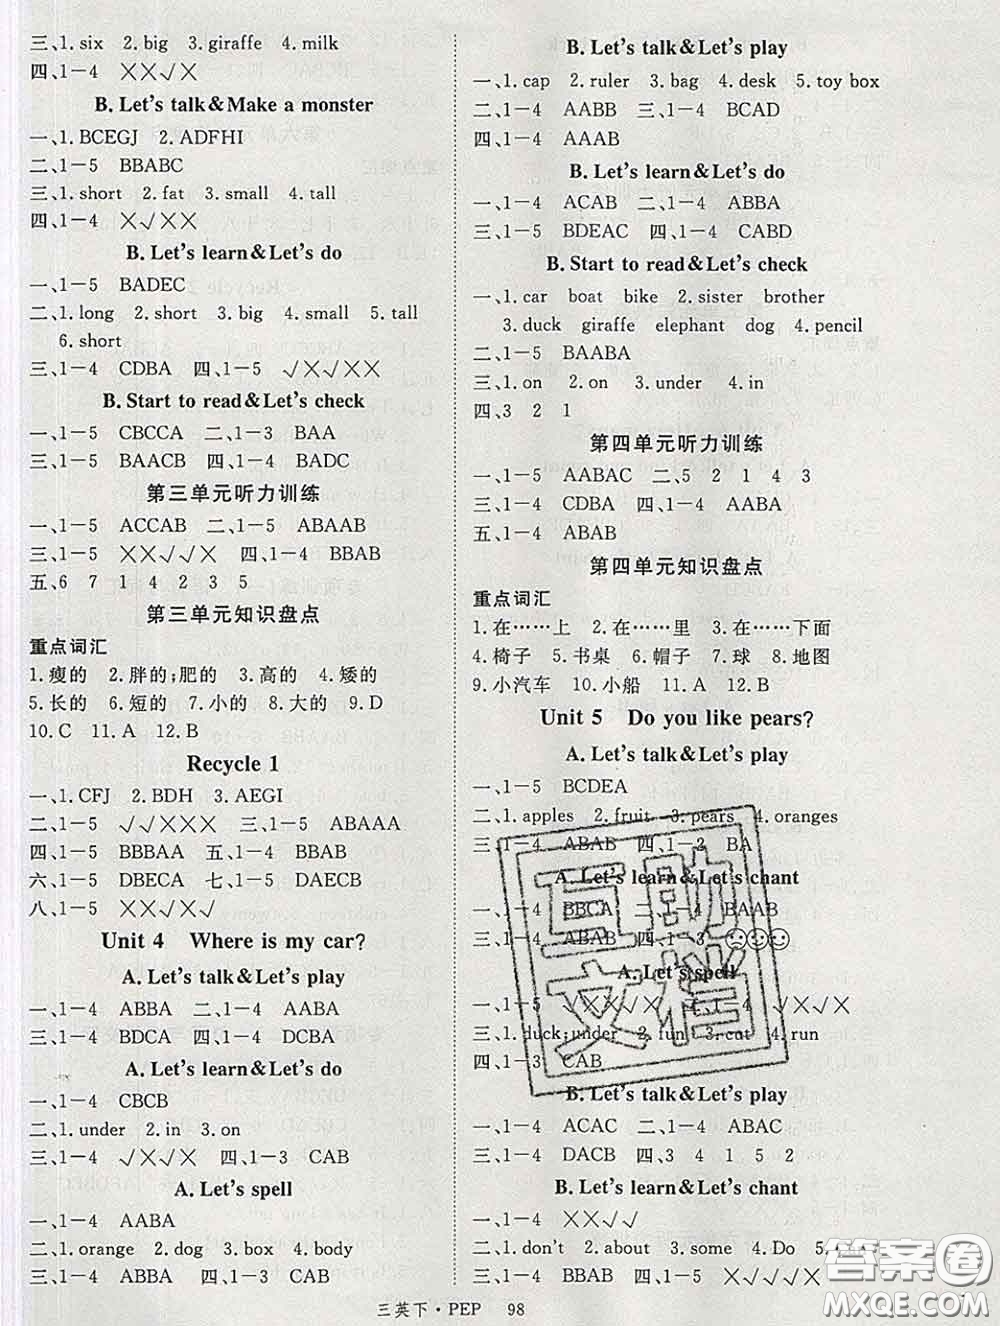 三、1. six 2. big 3. giraffe 4. milk
四、1-4 ✕✕✓✕
B. Let's talk&Make a monster
一、1. BCEGJ 2. ADFHI
二、1-5 BBABC
三、1. short 2. fat 3. small 4. tall
四、1-4 ✕✓✕✕
B. Let's learn&Let's do
一、1-5 BADEC
二、1. long 2. short 3. big 4. small 5. tall
6. short
三、1-4 CDBA 四、1-5 ✓✕✓✕✕
B. Start to read&Let's check
一、1-5 CBCCA 二、1-3 BAA
三、1-5 BAACB 四、1-4 BADC
第三单元听力训练
一、1-5 ACCAB 二、1-5 ABAAB
三、1-5 ✕✕✓✓✕ 四、1-4 BBAB
五、6 7 1 4 2 3 5
第三单元知识盘点
重点词汇
1. 瘦的 2. 胖的;肥的 3. 高的 4. 矮的
5. 长的 6. 短的 7. 小的 8. 大的 9. D
10. C 11. A 12. B
Recycle 1
一、1. CFJ 2. BDH 3. AEGI
二、1-5 ✓✓✕✕✕ 三、1-5 ABAAA
四、1-5 BBBAA 五、1-4 BBAB
六、1-5 DBECA 七、1-5 DAECB
八、1-5 ✕✕✓✕✓
Unit 4 Where is my car?
A. Let's talk&Let's play
一、1-4 ABBA 二、1-4 AABA
三、1-4 BDCA 四、1-4 DCBA
A. Let's learn&Let's do
一、1-4 CBCB
二、1. under 2. in 3. on
三、1-4 ✓✕✓✕ 四、1-3 CAB
A. Let's spell
一、1-4 AABA
二、1. orange 2. dog 3. box 4. body
三、1-4 ABBA 四、1-3 CAB
B. Let's talk&Let's play
一、1. cap 2. ruler 3. bag 4. desk 5. toy box
二、1-4 AABB 三、1-4 BCAD
四、1-4 AAAB
B. Let's learn&Let's do
一、1-4 ACAB 二、1-4 ABBA
三、1-5 BDEAC 四、1-4 CABD
B. Start to read&Let's check
一、1. car boat bike 2. sister brother
3. duck giraffe elephant dog 4. pencil
二、1-5 BAABA
三、1. on 2. on 3. under 4. in
四、3 2 1
第四单元听力训练
一、1-5 AABAC 二、5 2 1 4 3
三、1-4 CDBA 四、1-4 AABA
五、1-4 ABAB
第四单元知识盘点
重点词汇
1. 在……上 2. 在……里 3. 在……下面
4. 椅子 5. 书桌 6. 帽子 7. 球 8. 地图
9. 小汽车 10. 小船 11. A 12. B
Unit 5 Do you like pears?
A. Let's talk&Let's play
一、1-5 BCDEA
二、1. apples 2. fruit 3. pears 4. oranges
三、1-4 ABAB 四、1-2 BA
A. Let's learn&Let's chant
一、1-4 BBCA 二、1-4 BAAB
三、1-4 ABAB 四、1-3 ☹☺☺
A. Let's spell
一、1-5 ✓✕✓✕✓ 二、1-4 ✓✕✓✕
三、1. duck;under 2. fun 3. cut 4. run
四、1-3 CAB
B. Let's talk&Let's play
一、1-4 ACAC 二、1-4 ABAC
三、1-4 DACB 四、3 4 1 5 2
B. Let's learn&Let's chant
一、1-4 ✕✕✓✓
二、1. don't 2. about 3. some 4. Do
三、1-4 BBAB 四、1-4
三英下·PEP 98
互助文档
答案圈
MXQE.COM